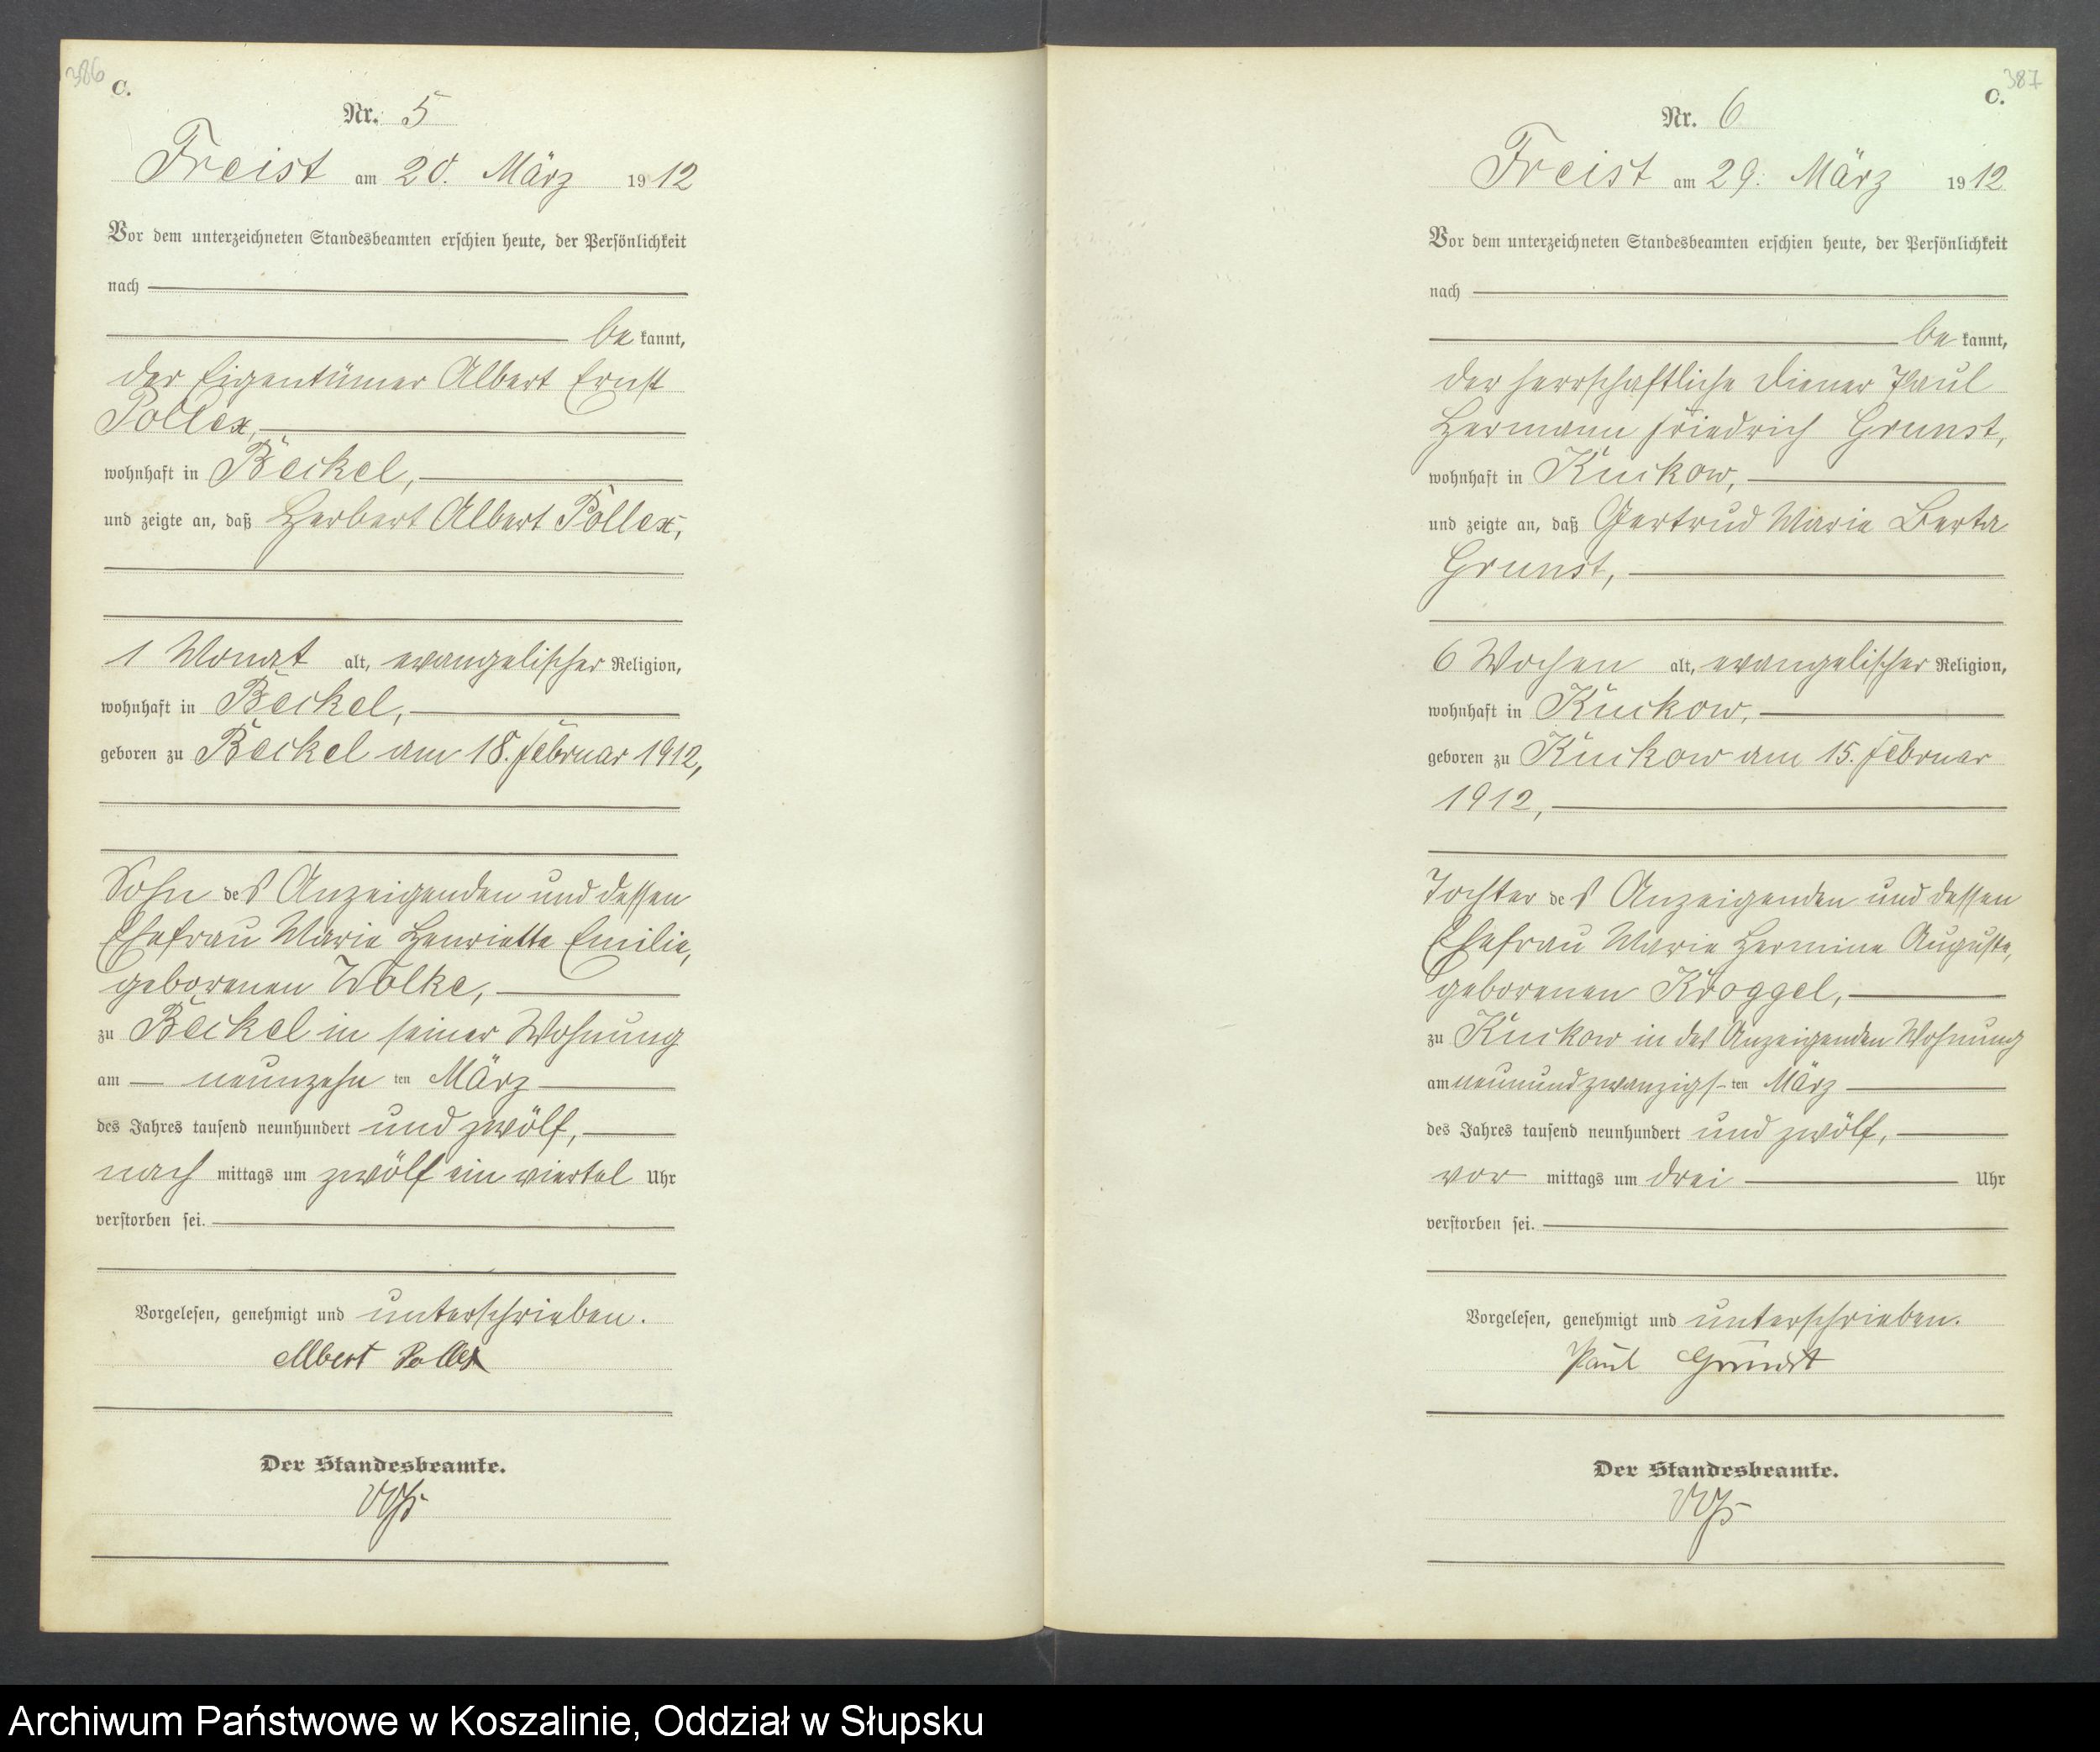 386
C.
Nr. 5
Freist am 20. März 1912
Vor dem unterzeichneten Standesbeamten erschien heute, der Persönlichkeit
nach
be kannt,
der Eigentümer Albert Ernst
Pollex,
wohnhaft in Beckel,
und zeigte an, daß Herbert Albert Pollex,
1 Monat alt, evangelischer Religion,
wohnhaft in Beckel,
geboren zu Beckel am 18. Februar 1912,
Sohn des Anzeigenden und dessen
Ehefrau Marie Henriette Emilie,
geborenen Wolke,
zu Beckel in seiner Wohnung
am neunzehn ten März
des Jahres tausend neunhundert und zwölf,
nach mittags um zwölf ein viertel Uhr
verstorben sei.
Vorgelesen, genehmigt und unterschrieben.
Albert Pollex
Der Standesbeamte.
387
C.
Nr. 6
Freist am 29. März 1912
Vor dem unterzeichneten Standesbeamten erschien heute, der Persönlichkeit
nach
be kannt,
der herrschaftliche Diener Paul
Hermann Friedrich Grunst,
wohnhaft in Kuckow,
und zeigte an, daß Gertrud Marie Berta
Grunst,
6 Wochen alt, evangelischer Religion,
wohnhaft in Kuckow,
geboren zu Kuckow am 15. Februar
1912,
Tochter des Anzeigenden und dessen
Ehefrau Marie Hermine Auguste,
geborenen Kroggel,
zu Kuckow in des Anzeigenden Wohnung
am neunundzwanzigs- ten März
des Jahres tausend neunhundert und zwölf,
vor mittags um drei Uhr
verstorben sei.
Vorgelesen, genehmigt und unterschrieben.
Paul Grunst
Der Standesbeamte.
Archiwum Państwowe w Koszalinie, Oddział w Słupsku